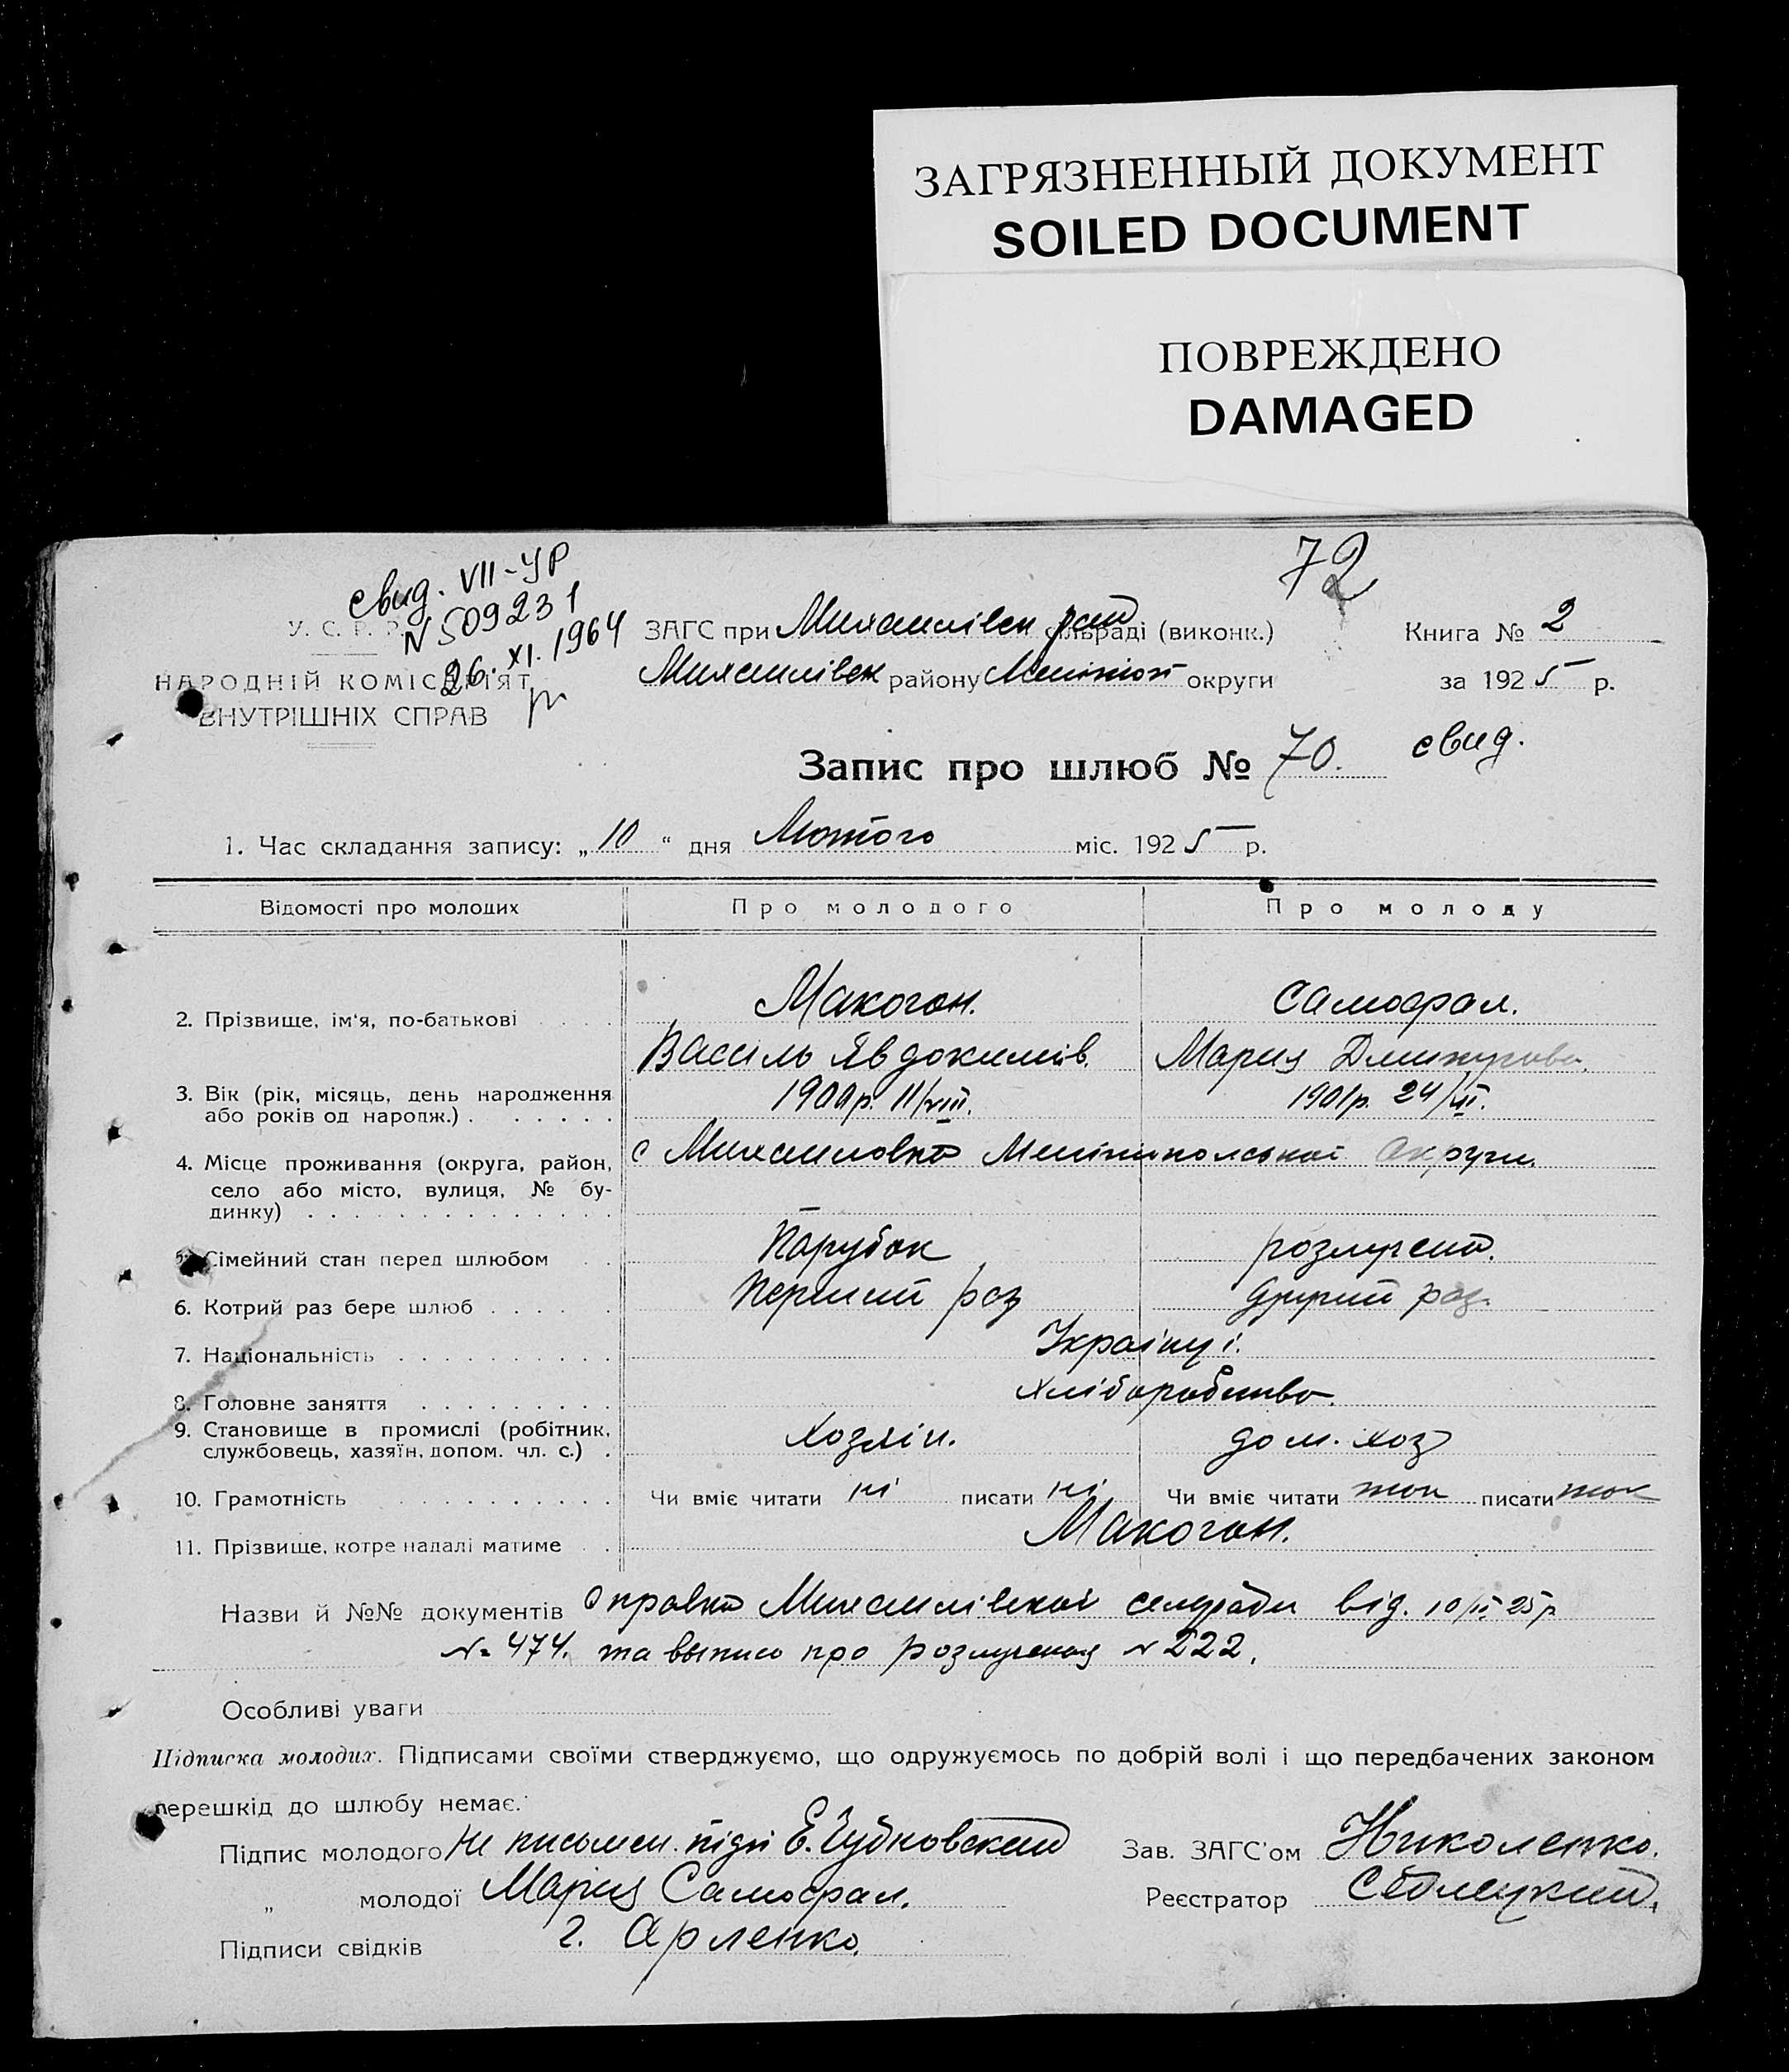 ЗАГРЯЗНЕННЫЙ ДОКУМЕНТ
SOILED DOCUMENT
ПОВРЕЖДЕНО
DAMAGED
72
свид. VII-УР
N 509231
26. XI. 1964
У. С. Р. Р.
НАРОДНІЙ КОМІСАРІЯТ
ВНУТРІШНІХ СПРАВ
ЗАГС при Михайлівск рай сільраді (виконк.)
Михайлівск району Меліноп округи
Книга № 2
за 1925 р.
Запис про шлюб № 70. свид.
1. Час складання запису: „10“ дня Лютого міс. 1925 р.
Відомості про молодих Про молодого Про молоду
2. Прізвище, ім'я, по-батькові Макогон. Самофал.
Василь Явдокимів. Мария
3. Вік (рік, місяць, день народження 1900р. 11/VIII. 1901р.
або років од народж.)
4. Місце проживання (округа, район, с Михайловка Мелітипольської Округи.
село або місто, вулиця, № бу-
динку)
5. Сімейний стан перед шлюбом Парубок розлучена.
6. Котрий раз бере шлюб Перший раз другий раз.
7. Національність Українці.
8. Головне заняття хліборобство.
9. Становище в промислі (робітник, Хозяін. дом. хоз
службовець, хазяїн, допом. чл. с.)
10. Грамотність Чи вміє читати ні писати ні Чи вміє читати так писати так
11. Прізвище, котре надалі матиме Макогон.
Назви й №№ документів Справка Михайлівскої селради від. 10/II 25р
№ 474. та выпись про розлучення № 222.
Особливі уваги
Підписка молодих. Підписами своїми стверджуємо, що одружуємось по добрій волі і що передбачених законом
перешкід до шлюбу немає.
Підпис молодого Не письмен. підп Е. Чубковский Зав. ЗАГС'ом Николенко.
„ молодої Мария Самофал. Реєстратор
Підписи свідків г. Арленко.